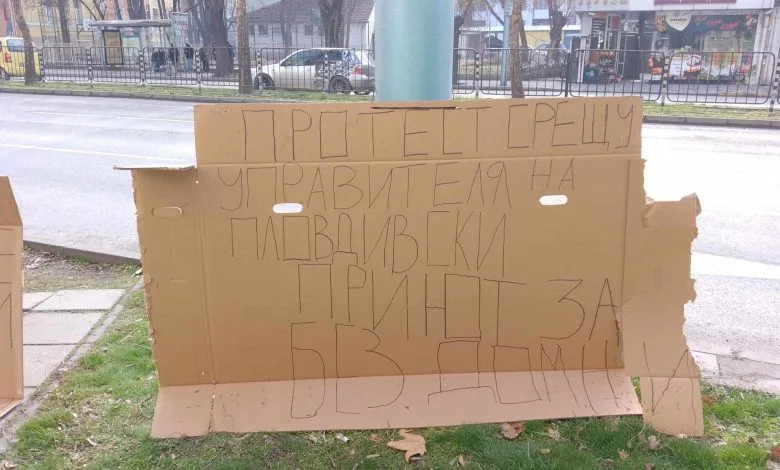 ПРОТЕСТ СРЕЩУ
УПРАВИТЕЛЯ НА
ПЛОВДИВСКИ
ПРИЮТ ЗА
БЕЗ. ДОМНИ